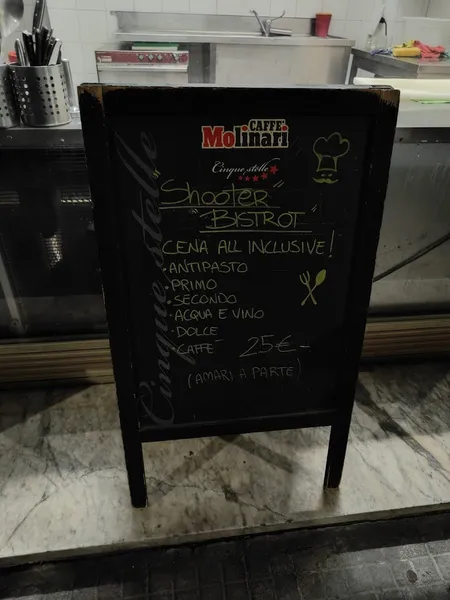 CAFFÈ
Molinari
Cinque stelle
Cinque stelle
"Shooter
BISTROT"
CENA ALL INCLUSIVE!
·ANTIPASTO
·PRIMO
·SECONDO
·ACQUA E VINO
·DOLCE
·CAFFE' 25€-
(AMARI A PARTE)